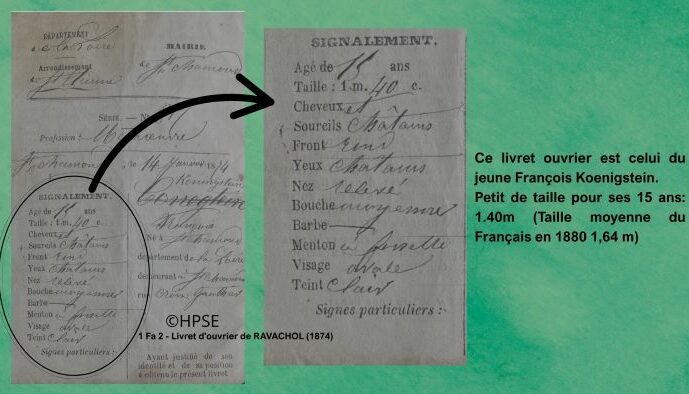 DÉPARTEMENT
de la Loire
Arrondissement
de St Etienne
MAIRIE
de St Chamond
SÉRIE. — N°
Profession : Manœuvre
St Chamond, le 14 Janvier 1874
SIGNALEMENT.
Agé de 15 ans
Taille : 1 m. 40 c.
Cheveux et
Sourcils Châtains
Front Rond
Yeux Chatains
Nez relevé
Bouche moyenne
Barbe —
Menton à fossette
Visage ovale
Teint Clair
Signes particuliers :
Koenigstein
François
Né à St Chamond
département de la Loire
demeurant à St Chamond
rue Croix Gauthier
Ayant justifié de son
identité et de sa position
a obtenu le présent livret
©HPSE
1 Fa 2 - Livret d'ouvrier de RAVACHOL (1874)
SIGNALEMENT.
Agé de 15 ans
Taille : 1 m. 40 c.
Cheveux et
Sourcils Châtains
Front Rond
Yeux Chatains
Nez relevé
Bouche moyenne
Barbe —
Menton à fossette
Visage ovale
Teint Clair
Signes particuliers :
Ce livret ouvrier est celui du
jeune François Koenigstein.
Petit de taille pour ses 15 ans:
1.40m (Taille moyenne du
Français en 1880 1,64 m)